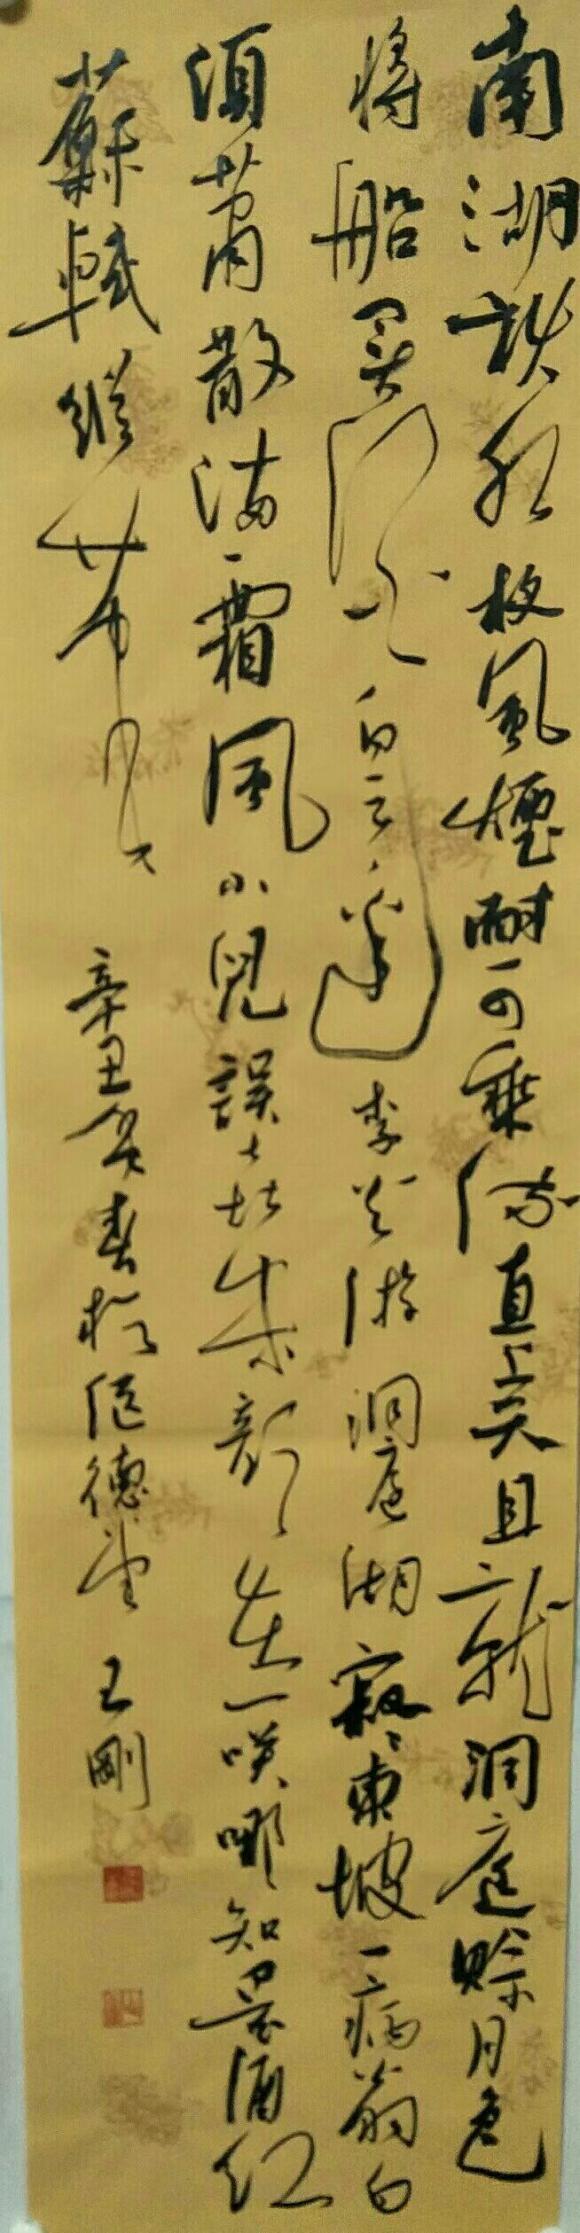 南湖秋水夜風煙耐可乘流直上天且就洞庭賒月色
將船買酒白雲邊 李白游洞庭湖 寂寂東坡一病翁白
須蕭散滿霜風小兒誤喜朱顏在一笑那知是酒紅
蘇軾縱筆 辛丑年春於德堂 王剛